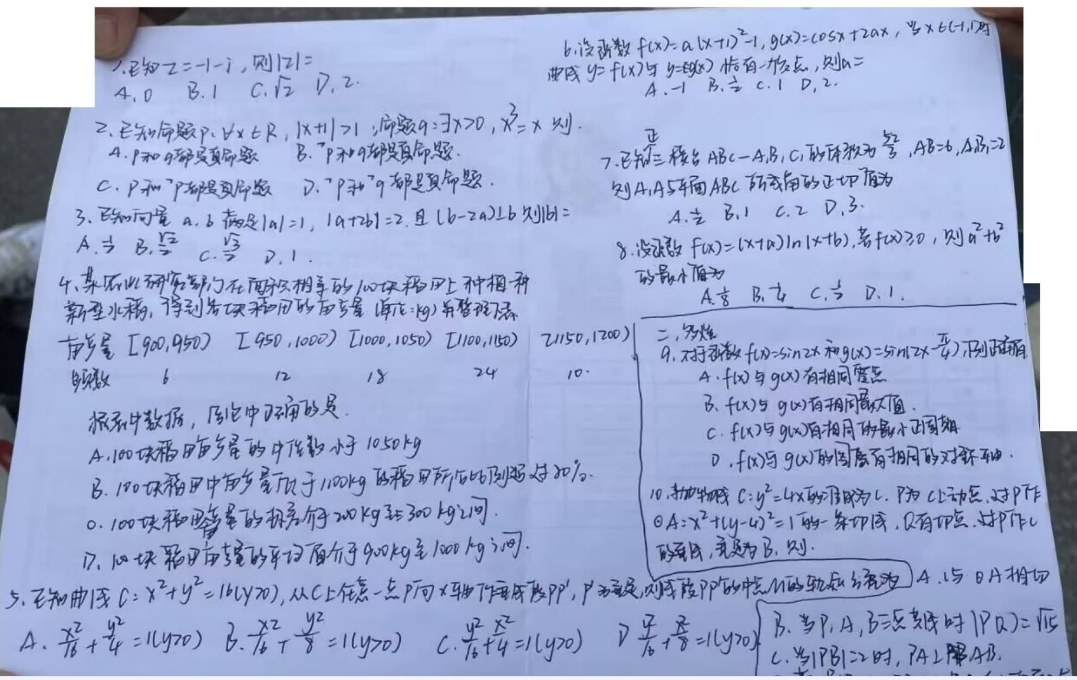 1.已知z=-1-i,则|z|=
A.0 B.1 C.√2 D.2.
2.已知命题p:∀x∈R,|x+1|>1;命题q:∃x>0,x³=x 则.
A.p和q都是真命题 B.¬p和q都是真命题.
C.p和¬p都是真命题 D.¬p和¬q都是真命题.
3.已知向量a.b满足|a|=1,|a+2b|=2,且(b-2a)⊥b 则|b|=
A.½ B.√2/2 C.√3/2 D.1.
4.某农业研究部门在面积相等的100块稻田上种植一种
新型水稻,得到各块稻田的亩产量(单位:kg)并整理下表
亩产量 [900,950) [950,1000) [1000,1050) [1100,1150) [1150,1200)
频数 6 12 18 24 10.
据表中数据,结论中正确的是.
A.100块稻田亩产量的中位数小于1050kg
B.100块稻田中亩产量低于1100kg的稻田所占比例超过80%.
C.100块稻田亩产量的极差介于200kg至300kg之间.
D.100块稻田亩产量的平均值介于900kg至1000kg之间.
5.已知曲线C:x²+y²=16(y>0),从C上任意一点P向x轴作垂线段PP',P'为垂足,则线段PP'的中点M的轨迹方程为
A.x²/16+y²/4=1(y>0) B.x²/16+y²/8=1(y>0) C.y²/16+x²/4=1(y>0) D y²/16+x²/8=1(y>0)
6.设函数f(x)=a(x+1)²-1,g(x)=cosx+2ax,当x∈(-1,1)时
曲线y=f(x)与y=g(x)恰有一交点,则a=
A.-1 B.½ C.1 D.2.
7.已知正三棱台ABC-A₁B₁C₁的体积为52/3,AB=6,A₁B₁=2
则A₁A与平面ABC所成角的正切值为
A.½ B.1 C.2 D.3.
8.设函数f(x)=(x+a)ln(x+b),若f(x)≥0,则a²+b²
的最小值为
A.⅛ B.¼ C.½ D.1.
二、多选
9.对于函数f(x)=sin2x和g(x)=sin(2x-π/4),下列正确有
A.f(x)与g(x)有相同零点
B.f(x)与g(x)有相同最大值.
C.f(x)与g(x)有相同的最小正周期
D.f(x)与g(x)的图象有相同的对称轴.
10.抛物线C:y²=4x的准线为l.P为C上动点,过P作
⊙A:x²+(y-4)²=1的一条切线,Q有切点,过P作l
的垂线,垂足为B.则.
A.l与⊙A相切
B.当P,A,B三点共线时|PQ|=√15
C.当|PB|=2时,PA⊥AB.